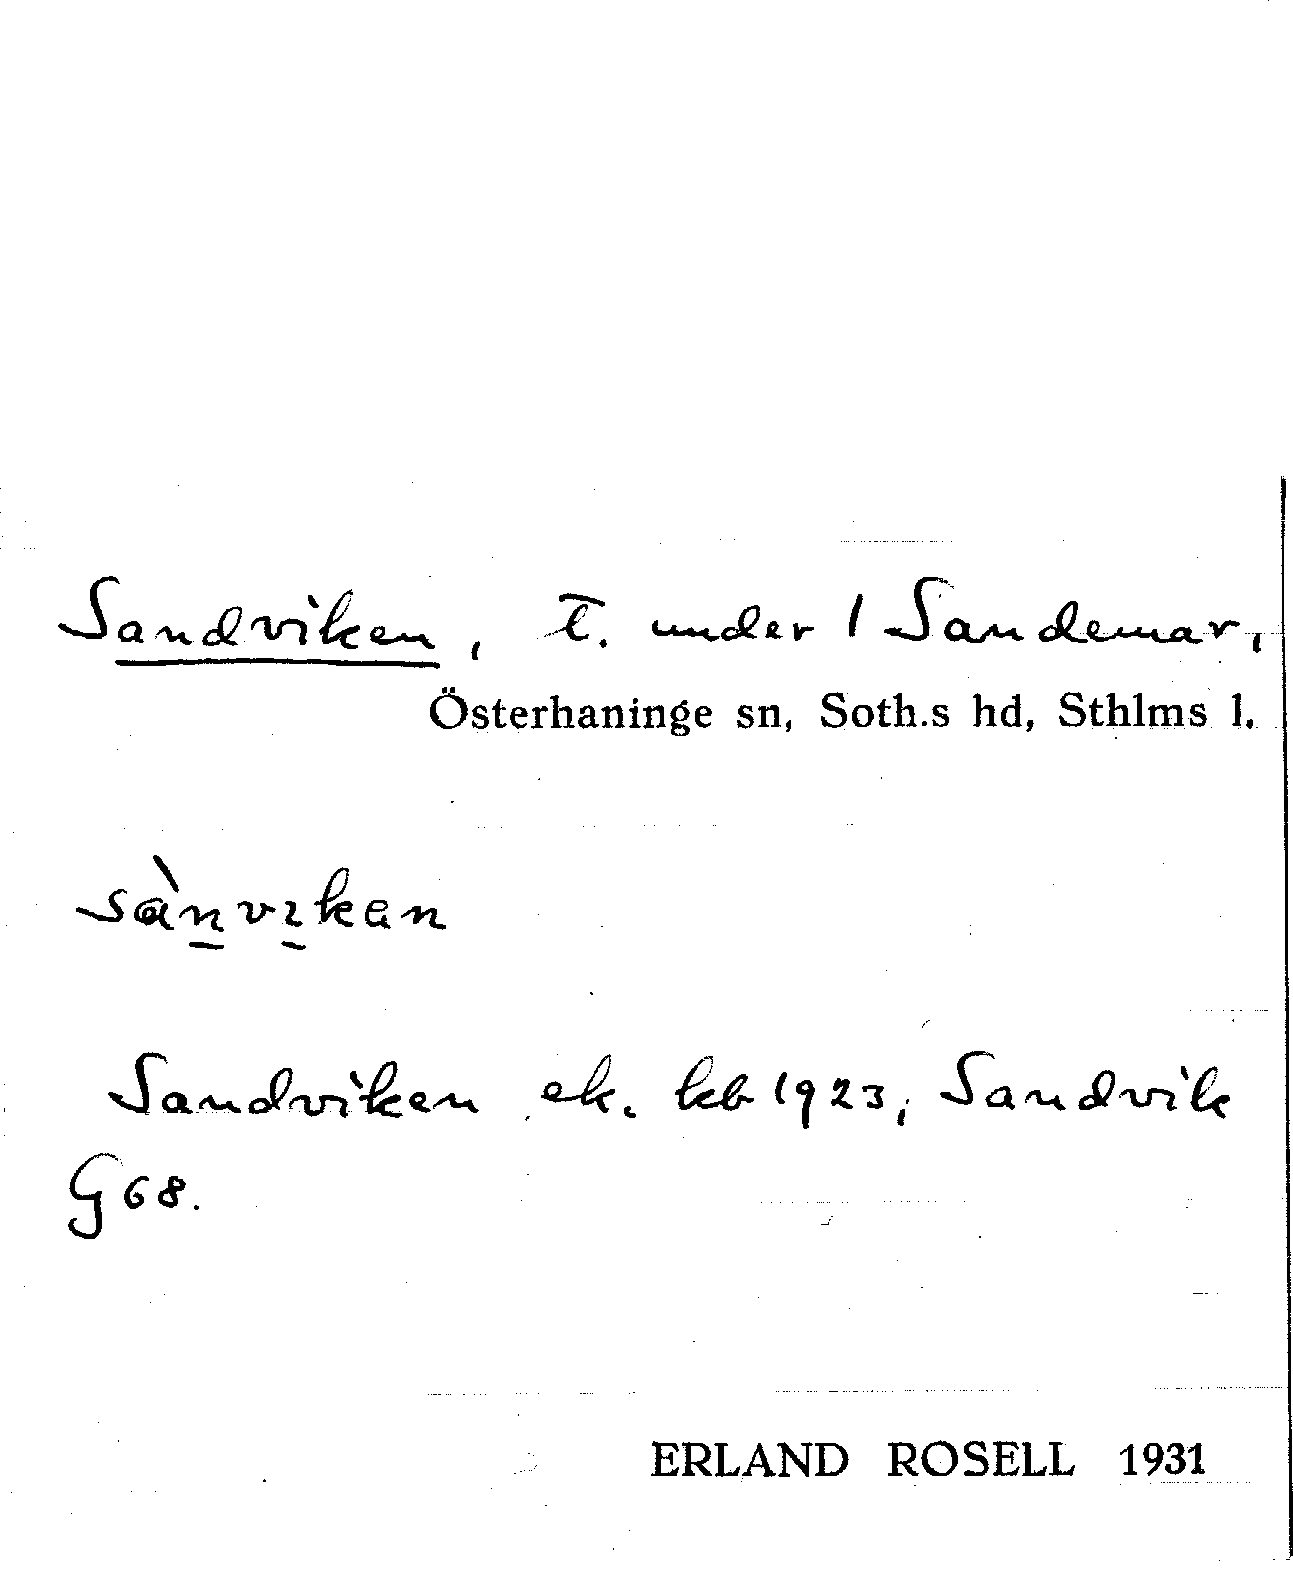 Sandviken, t. under / Sandemar,
Österhaninge sn, Soth.s hd, Sthlms l.
sànvıkan
Sandviken ek. kb 1923, Sandvik
G 68.
ERLAND ROSELL 1931